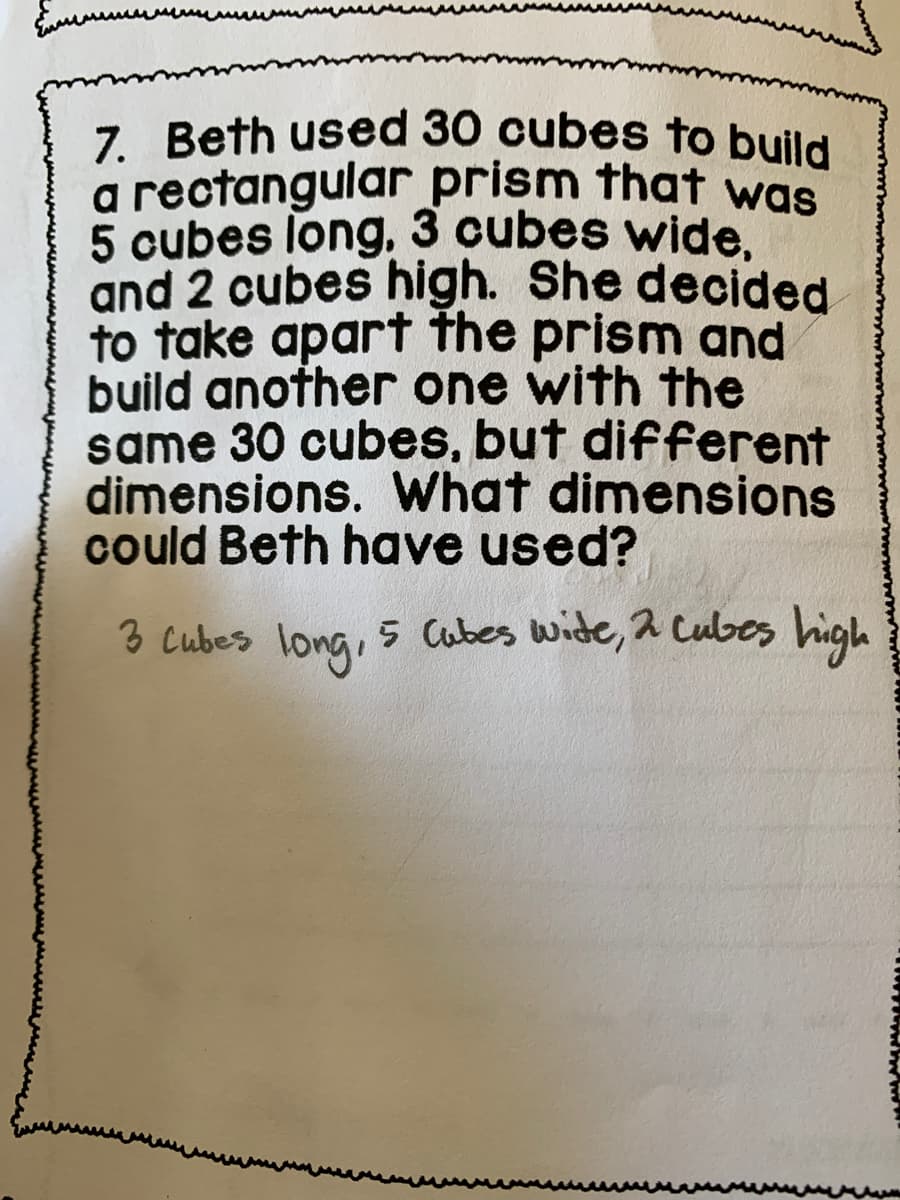 7. Beth used 30 cubes to build
a rectangular prism that was
5 cubes long, 3 cubes wide,
and 2 cubes high. She decided
to take apart the prism and
build another one with the
same 30 cubes, but different
dimensions. What dimensions
could Beth have used?
3 Cubes long, 5 Cubes wide, 2 Cubes high